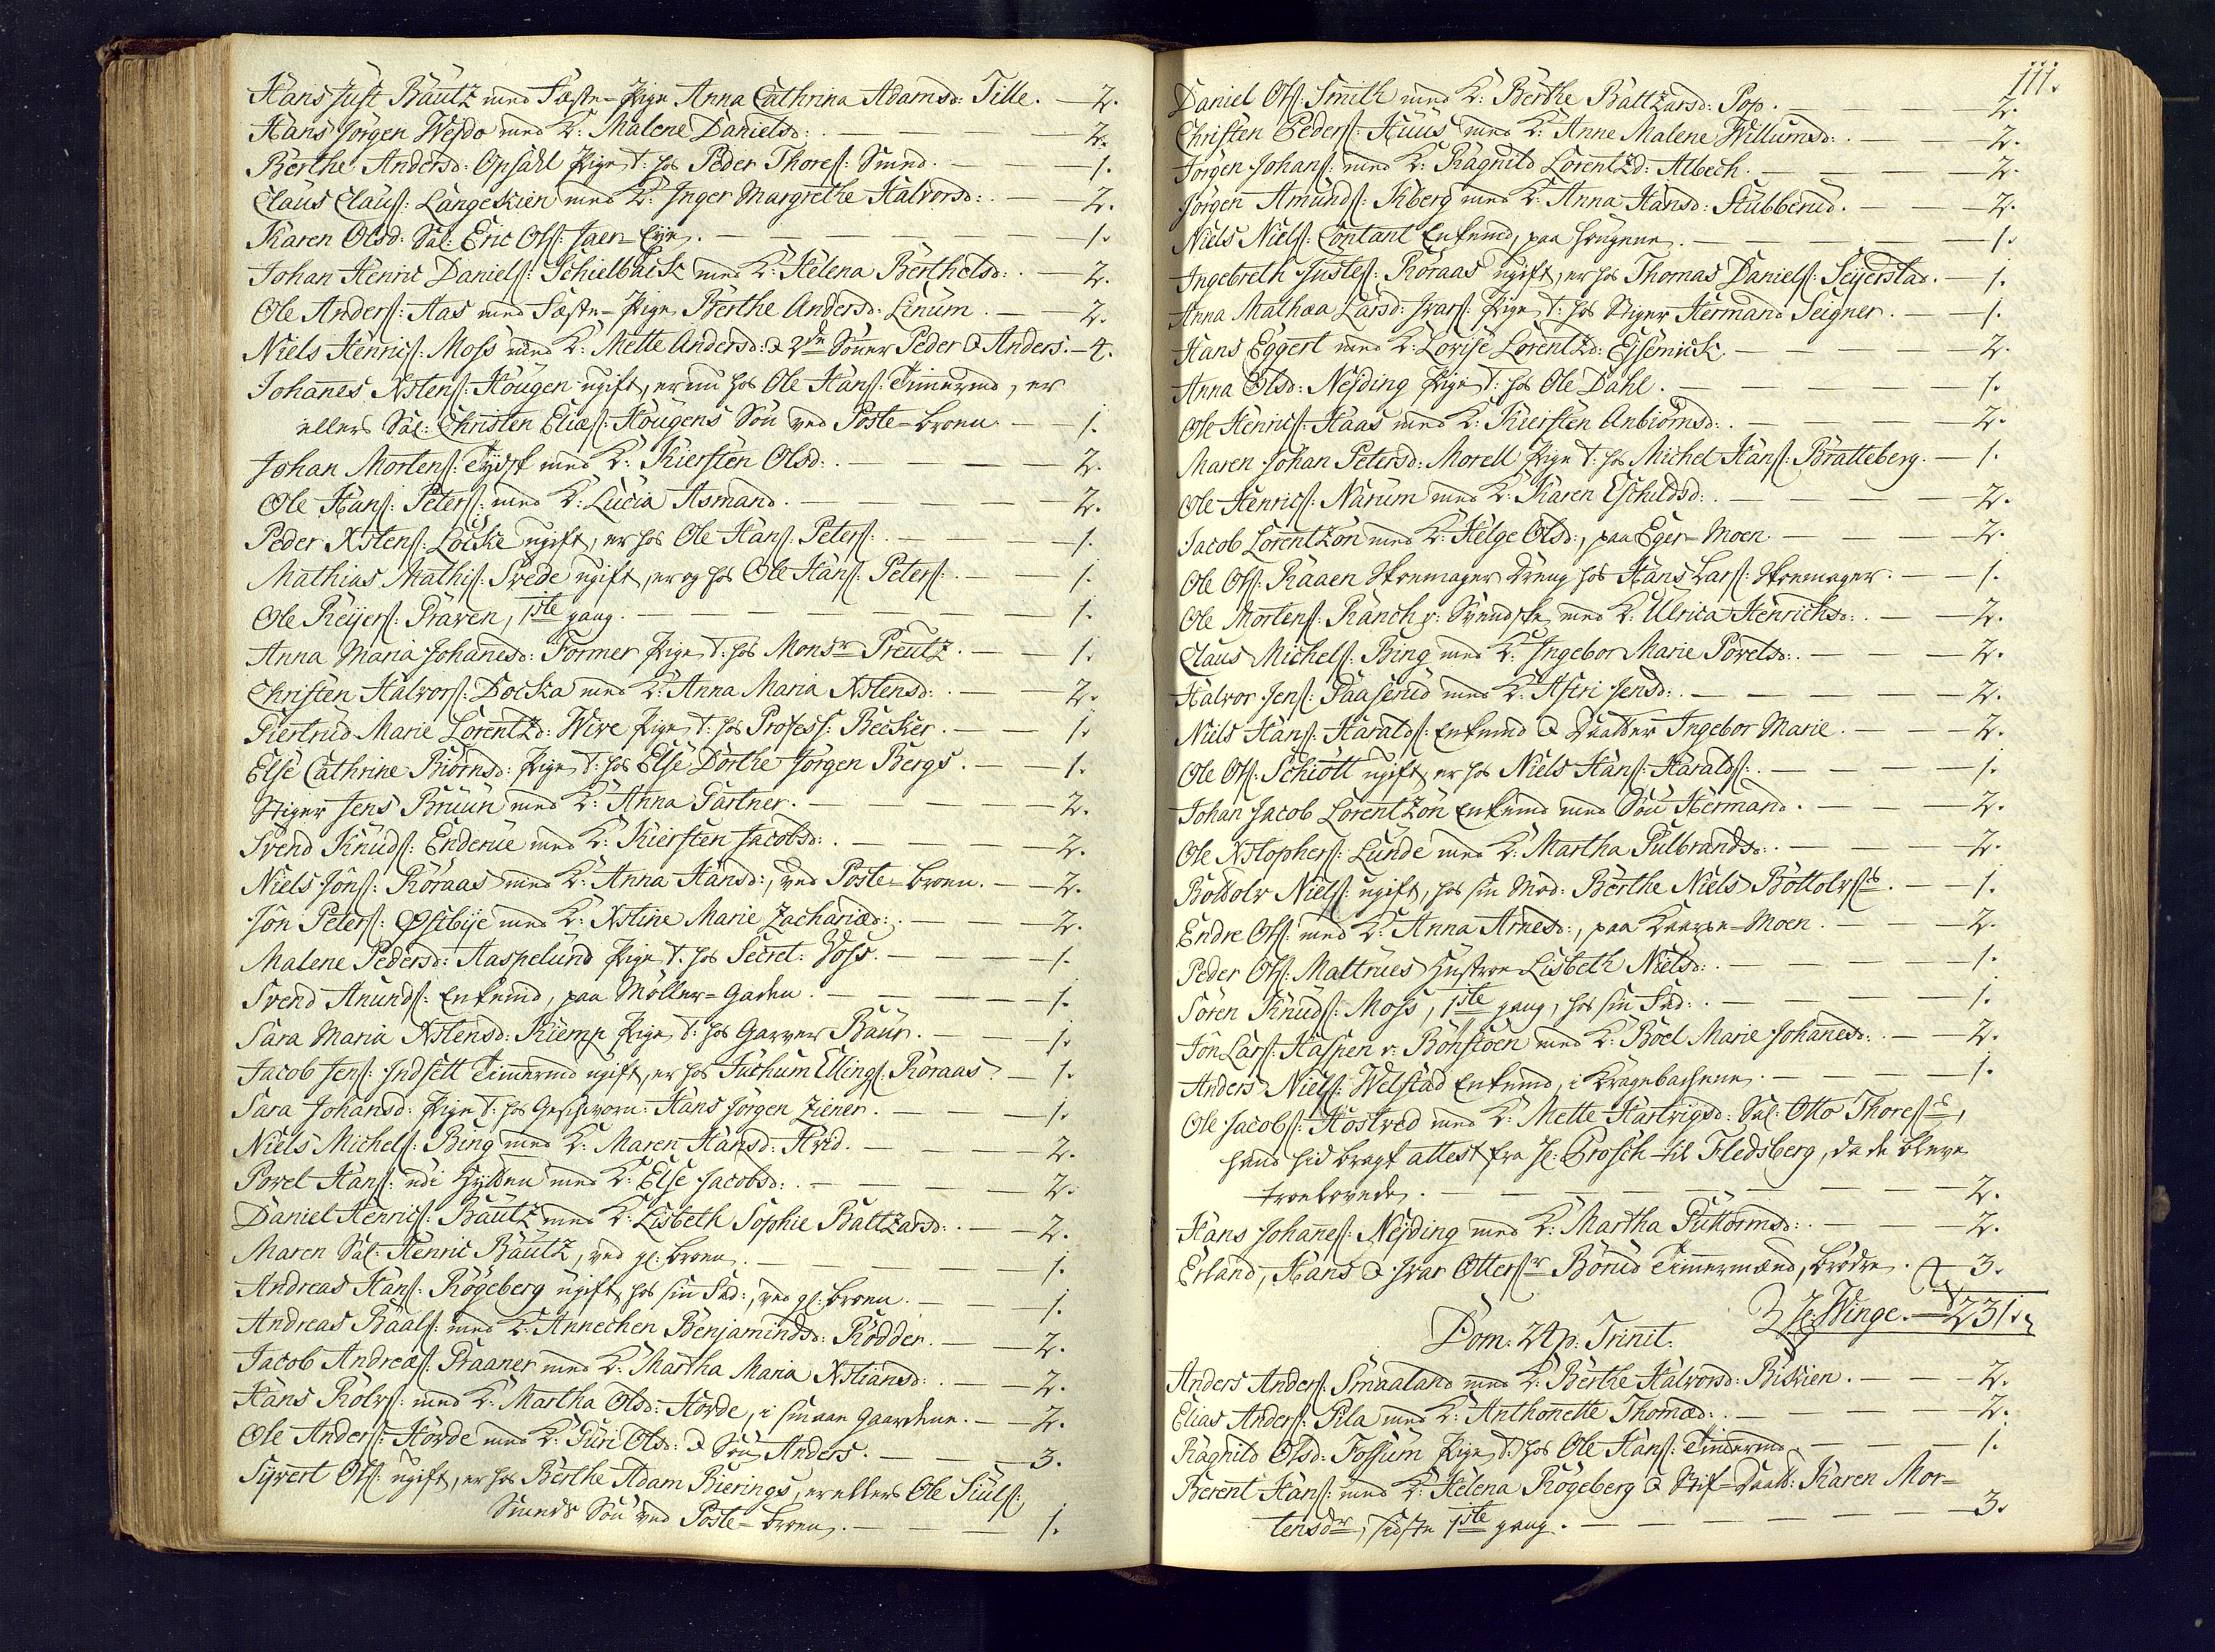 Hans Just Bautz med Fæste-Pige Anna Cathrina Adamsd: Tille. — 2.
Hans Jörgen Weydo med K: Malene Danielsd: — 2.
Berthe Andersd: Opsahl Pige T: hos Peder Thores: Smed. — 1.
Claus Claus: Langeskien med K: Inger Margrethe Halvorsd: — 2.
Karen Olsd: Sal: Eric Ols: Jaer-Eye. — 1.
Johan Henric Daniels: Schielbaick med K: Helena Berthelsd: — 2.
Ole Anders: Aas med Fæste-Pige Berthe Andersd: Linum. — 2.
Niels Henrics: Moss med K: Mette Andersd: & 2de Sönner Peder & Anders. — 4.
Johanes Xstens: Hougen ugift, er nu hos Ole Hans: Timermd, er
ellers Sal: Christen Elias: Hougens Sön ved Poste-broen — 1.
Johan Mortens: Tydsk med K: Kiersten Olsd: — 2.
Ole Hans: Peters: med K: Lucia Asmand. — 2.
Peder Xstens: Löcke ugift, er hos Ole Hans: Peters: — 1.
Mathias Mathis: Svede ugift, er og hos Ole Hans: Peters: — 1.
Ole Reyers: Praven, 1ste gang. — 1.
Anna Maria Johanesd: Former Pige T: hos Monsr Preutz. — 1.
Christen Halvors: Docka med K: Anna Maria Xstensd: — 2.
Giertrud Marie Lorentzd: Wive Pige T: hos Profess: Becker. — 1.
Else Cathrine Biörnsd: Pige T: hos Else Dorthe Jörgen Bergs. — 1.
Stiger Jens Bruun med K: Anna Gartner. — 2.
Svend Knuds: Enderue med K: Kiersten Jacobsd: — 2.
Niels Jöns: Röraas med K: Anna Hansd:, ved Poste-broen. — 2.
Jon Peters: Östbye med K: Xstine Marie Zachariæd: — 2.
Malene Pedersd: Haspelund Pige T: hos Secret: Voss. — 1.
Svend Anunds: Enkemd, paa Möller-Gaden. — 1.
Sara Maria Xstensd: Kiemp Pige T: hos Garver Baur. — 1.
Jacob Jens: Indsett Timermd ugift, er hos Guthum Ellings: Röraas. — 1.
Sara Johansd: Pige T: hos Geschworn: Hans Jörgen Ziener. — 1.
Niels Michels: Bing med K: Maren Hansd: Hvid. — 2.
Povel Hans: udi Hytten med K: Else Jacobsd: — 2.
Daniel Henrics: Bautz med K: Lisbeth Sophie Baltzarsd: — 2.
Maren Sal: Henric Bautz, ved gl: broen. — 1.
Andreas Hans: Rögeberg ugift, hos sin Fad:, ved gl: broen. — 1.
Andreas Baals: med K: Annechen Benjamindsd: Rödder. — 2.
Jacob Andreæs: Praaner med K: Martha Maria Xstiansd: — 2.
Hans Rolvs: med K: Martha Olsd: Hovde, i smaae Gaardene. — 2.
Ole Anders: Hovde med K: Guri Olsd: & Sön Anders. — 3.
Syvert Ols: ugift, er hos Berthe Adam Bierings, er ellers Ole Siuls:
Smeds Sön ved Poste-broen. — 1.
111.
Daniel Ols: Smith med K: Berthe Baltzarsd: Pop. — 2.
Christen Peders: Huus med K: Anne Malene Willumsd: — 2.
Jörgen Johans: med K: Ragnild Lorentzd: Albech. — 2.
Jörgen Amunds: Kberg med K: Anna Hansd: Stubberud. — 2.
Niels Niels: Contant Enkemd, paa Hougene. — 1.
Ingebreth Justes: Röraas ugift, er hos Thomas Daniels: Seyerstad. — 1.
Anna Mathæa Larsd: Ivars: Pige T: hos Stiger Hermand Seigner. — 1.
Hans Eggert med K: Lovise Lorentzd: Eysenick. — 2.
Anna Olsd: Neyding Pige T: hos Ole Dahl. — 1.
Ole Henrics: Haas med K: Kiersten Anbiörnsd: — 2.
Maren Johan Petersd: Morell Pige T: hos Michel Hans: Bratteberg. — 1.
Ole Henrics: Narum med K: Karen Eschildsd: — 2.
Jacob Lorentzon med K: Helge Olsd:, paa Eger-Moen. — 2.
Ole Ols: Raaen Skoemager Dreng hos Hans Lars: Skoemager. — 1.
Ole Mortens: Ranch v: Svendske med K: Ulrica Henrichsd: — 2.
Claus Michels: Bing med K: Ingebor Marie Povelsd: — 2.
Halvor Jens: Paaserud med K: Asiri Jensd: — 2.
Niels Hans: Haralds: Enkemd & Daatter Ingebor Marie. — 2.
Ole Ols: Schiött ugift, er hos Niels Hans: Haralds: — 1.
Johan Jacob Lorentzon Enkemd med Sön Hermand. — 2.
Ole Xstophers: Lunde med K: Martha Gulbrandsd: — 2.
Bottolv Niels: ugift, hos sin Mod: Berthe Niels Bottolvss. — 1.
Endre Ols: med K: Anna Arnesd:, paa Kaarse-Moen. — 2.
Peder Ols: Maltrues Hustroe Lisbeth Nielsd: — 1.
Sören Knuds: Moss, 1ste gang, hos sin Fad: — 1.
Jon Lars: Haspen v: Böhstöen med K: Boel Marie Johanesd: — 2.
Anders Niels: Welstad Enkemd, i Kragebachene. — 1.
Ole Jacobs: Höstved med K: Mette Hartvigsd: Sal: Otto Thoress,
hand hid bragt attest fra Hr: Brosch til Fledsberg, da de bleve
troelovede. — 2.
Hans Johanes: Neyding med K: Martha Guttormsd: — 2.
Erland, Hans & Ivar Otterssr Börud Timmermænd, brödre. — 3.
Hr: Winge. — 231.
Dom: 24 p. Trinit:
Anders Anders: Smaaland med K: Berthe Halvorsd: Biskien. — 2.
Elias Anders: Pila med K: Anthonette Thomæd: — 2.
Ragnild Olsd: Fossum Pige T: hos Ole Hans: Timermd. — 1.
Berent Hans: med K: Helena Rögeberg & Stif-Daatt: Karen Mor-
tensdr, sidste 1ste gang. — 3.